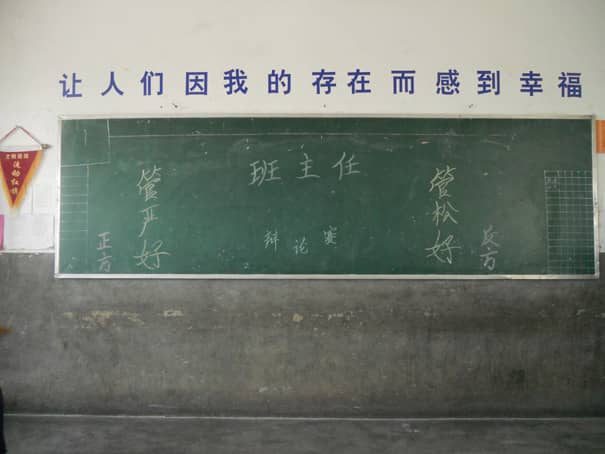 让人们因我的存在而感到幸福
班主任
管严好
管松好
正方
辩论赛
反方
流动红旗